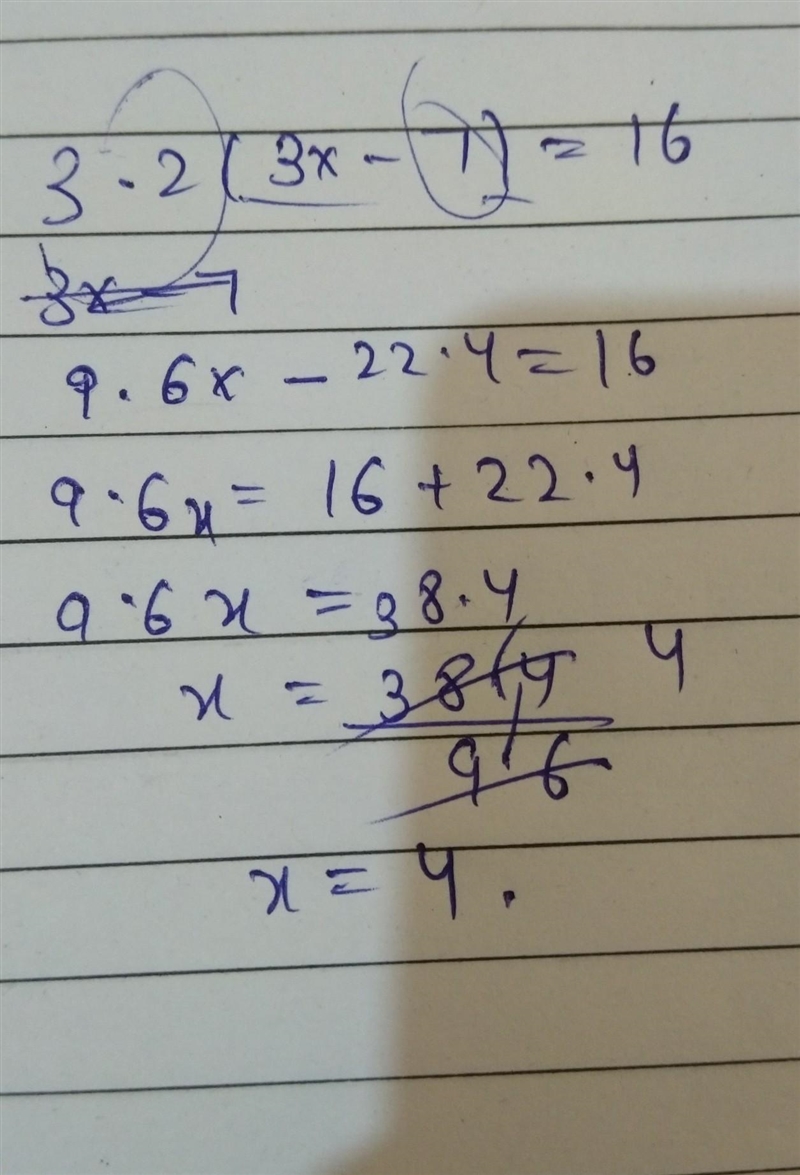 3.2(3x - 7) = 16
3x - 7
9.6x - 22.4 = 16
9.6x = 16 + 22.4
9.6x = 38.4
x = 38.4 4
9.6
x = 4.